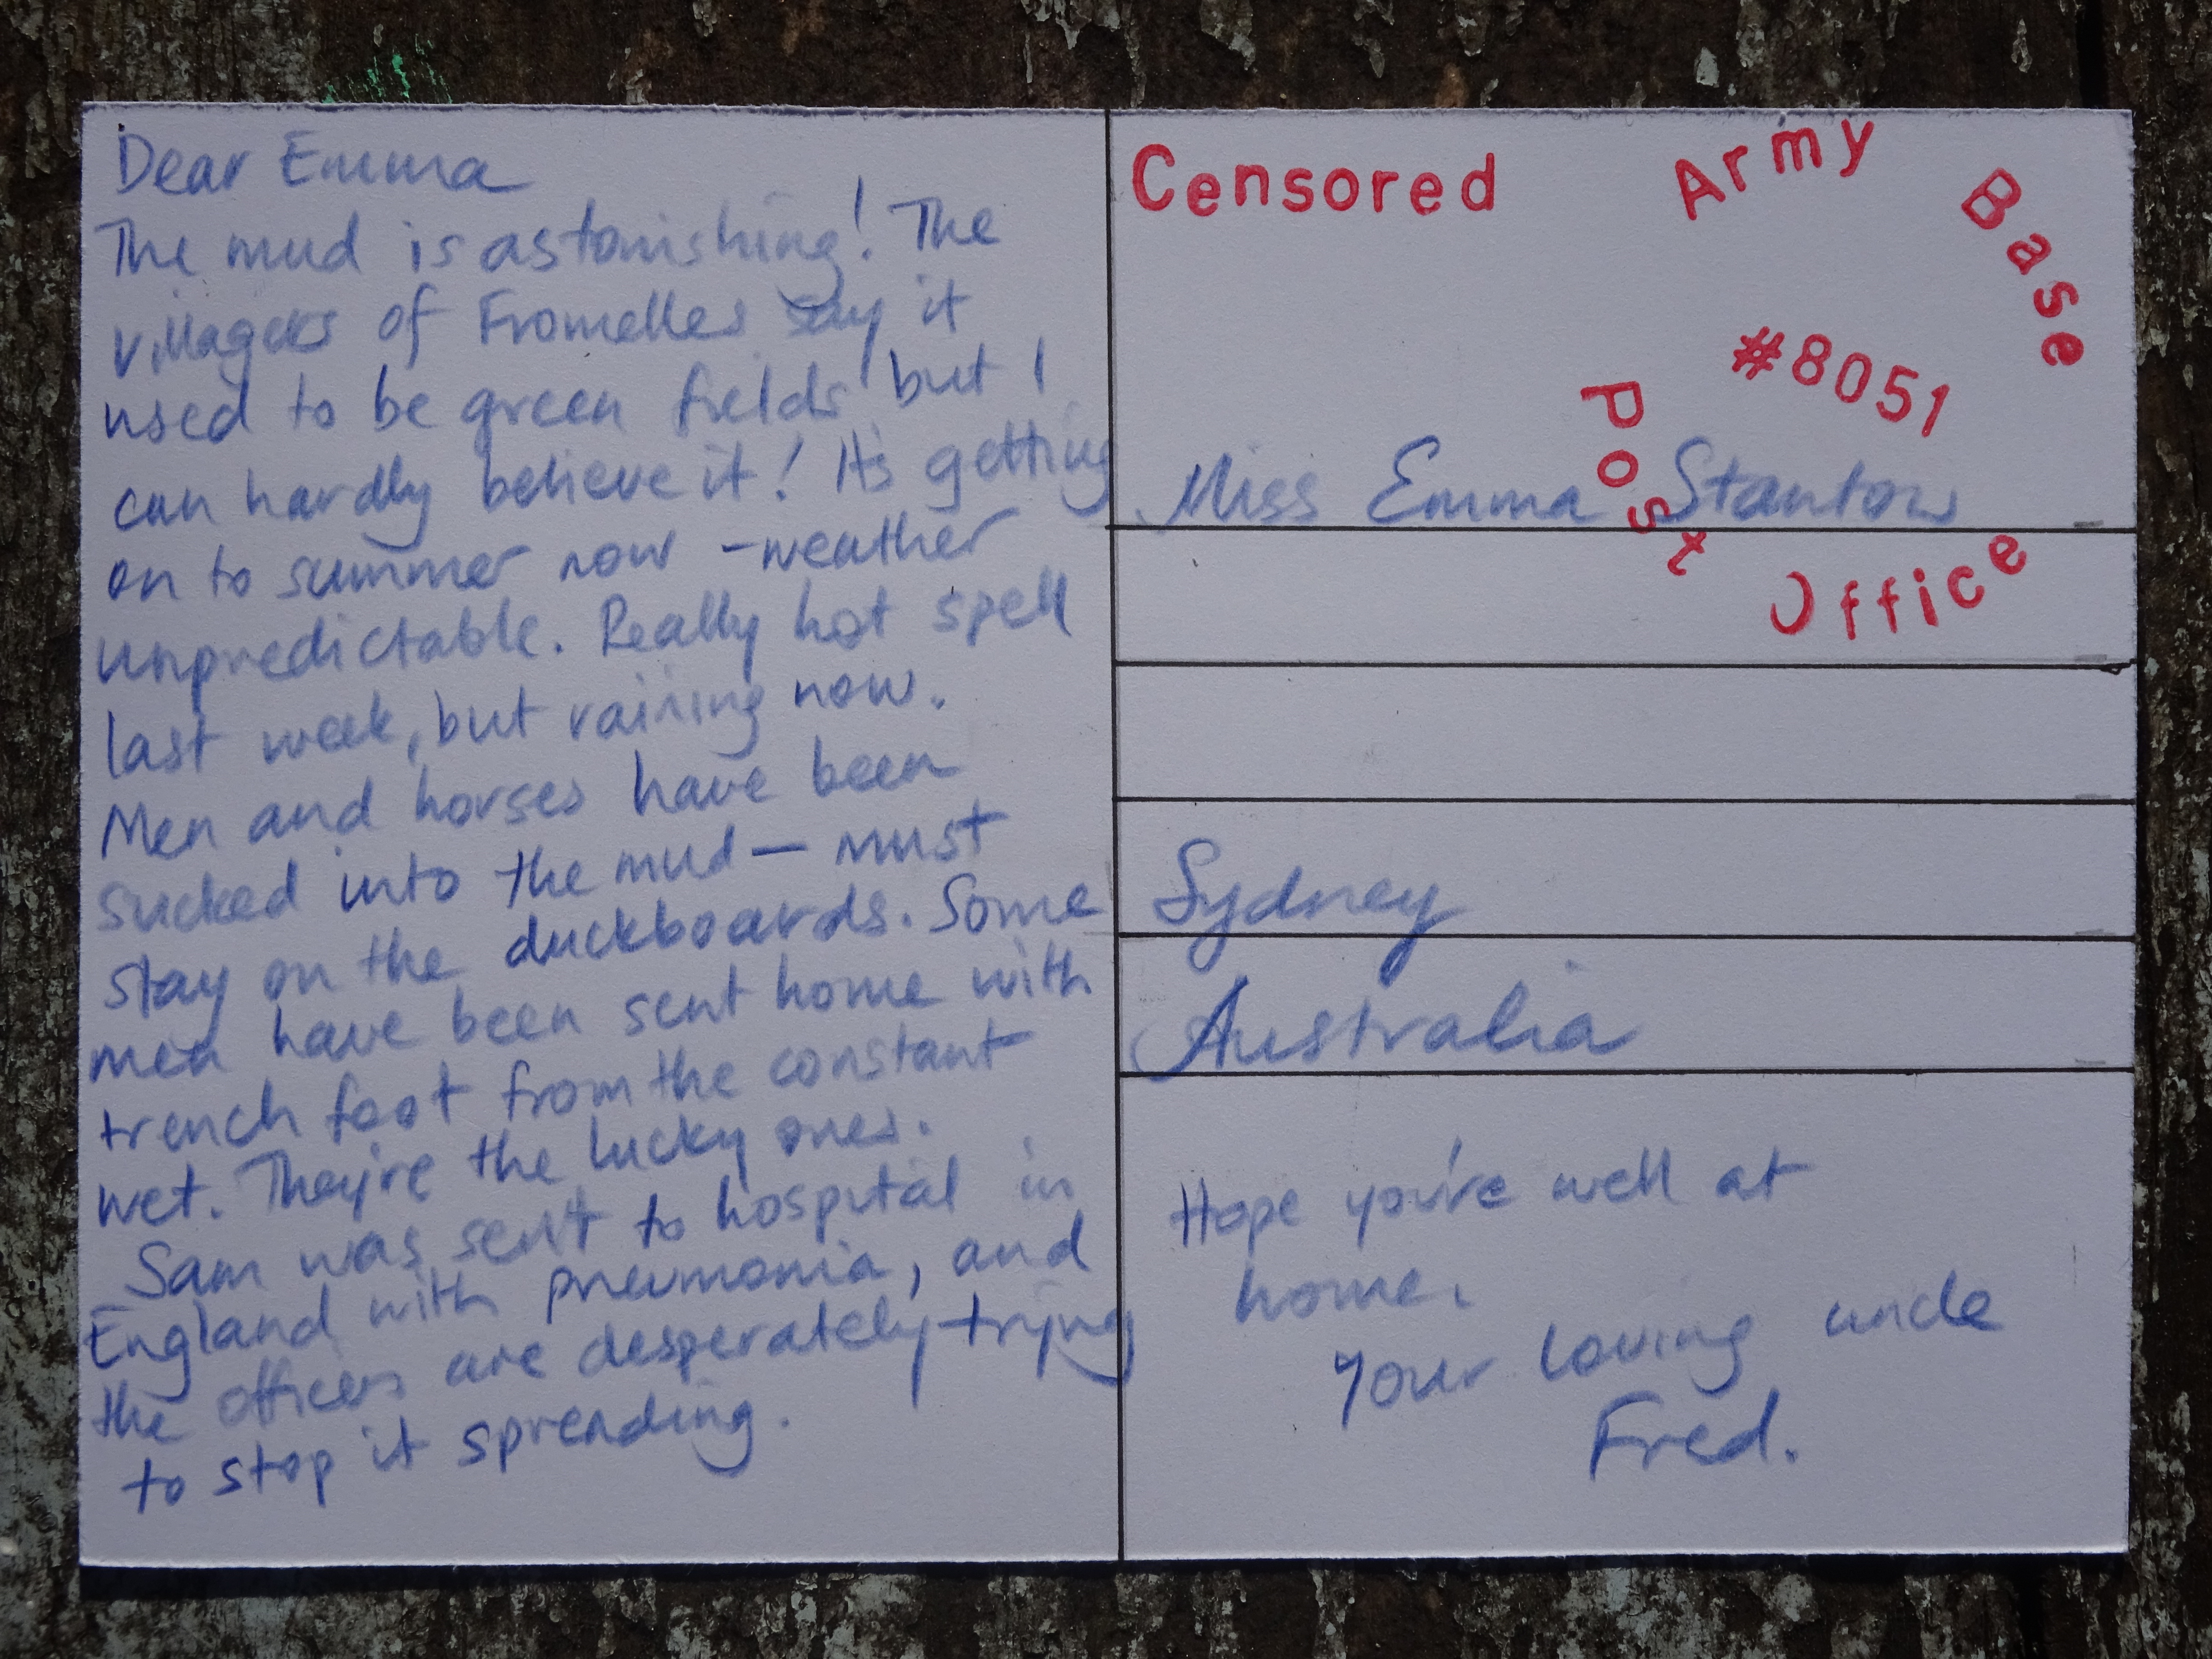 Dear Emma
The mud is astonishing! The
villagers of Fromelles say it
used to be green fields but I
can hardly believe it! It's getting
on to summer now - weather
unpredictable. Really hot spell
last week, but raining now.
Men and horses have been
sucked into the mud — must
stay on the duckboards. Some
men have been sent home with
trench foot from the constant
wet. They're the lucky ones.
Sam was sent to hospital in
England with pneumonia, and
the officers are desperately trying
to stop it spreading.
Censored
Army Base
#8051
Post Office
Miss Emma Stanton
Sydney
Australia
Hope you're well at
home.
Your loving uncle
Fred.